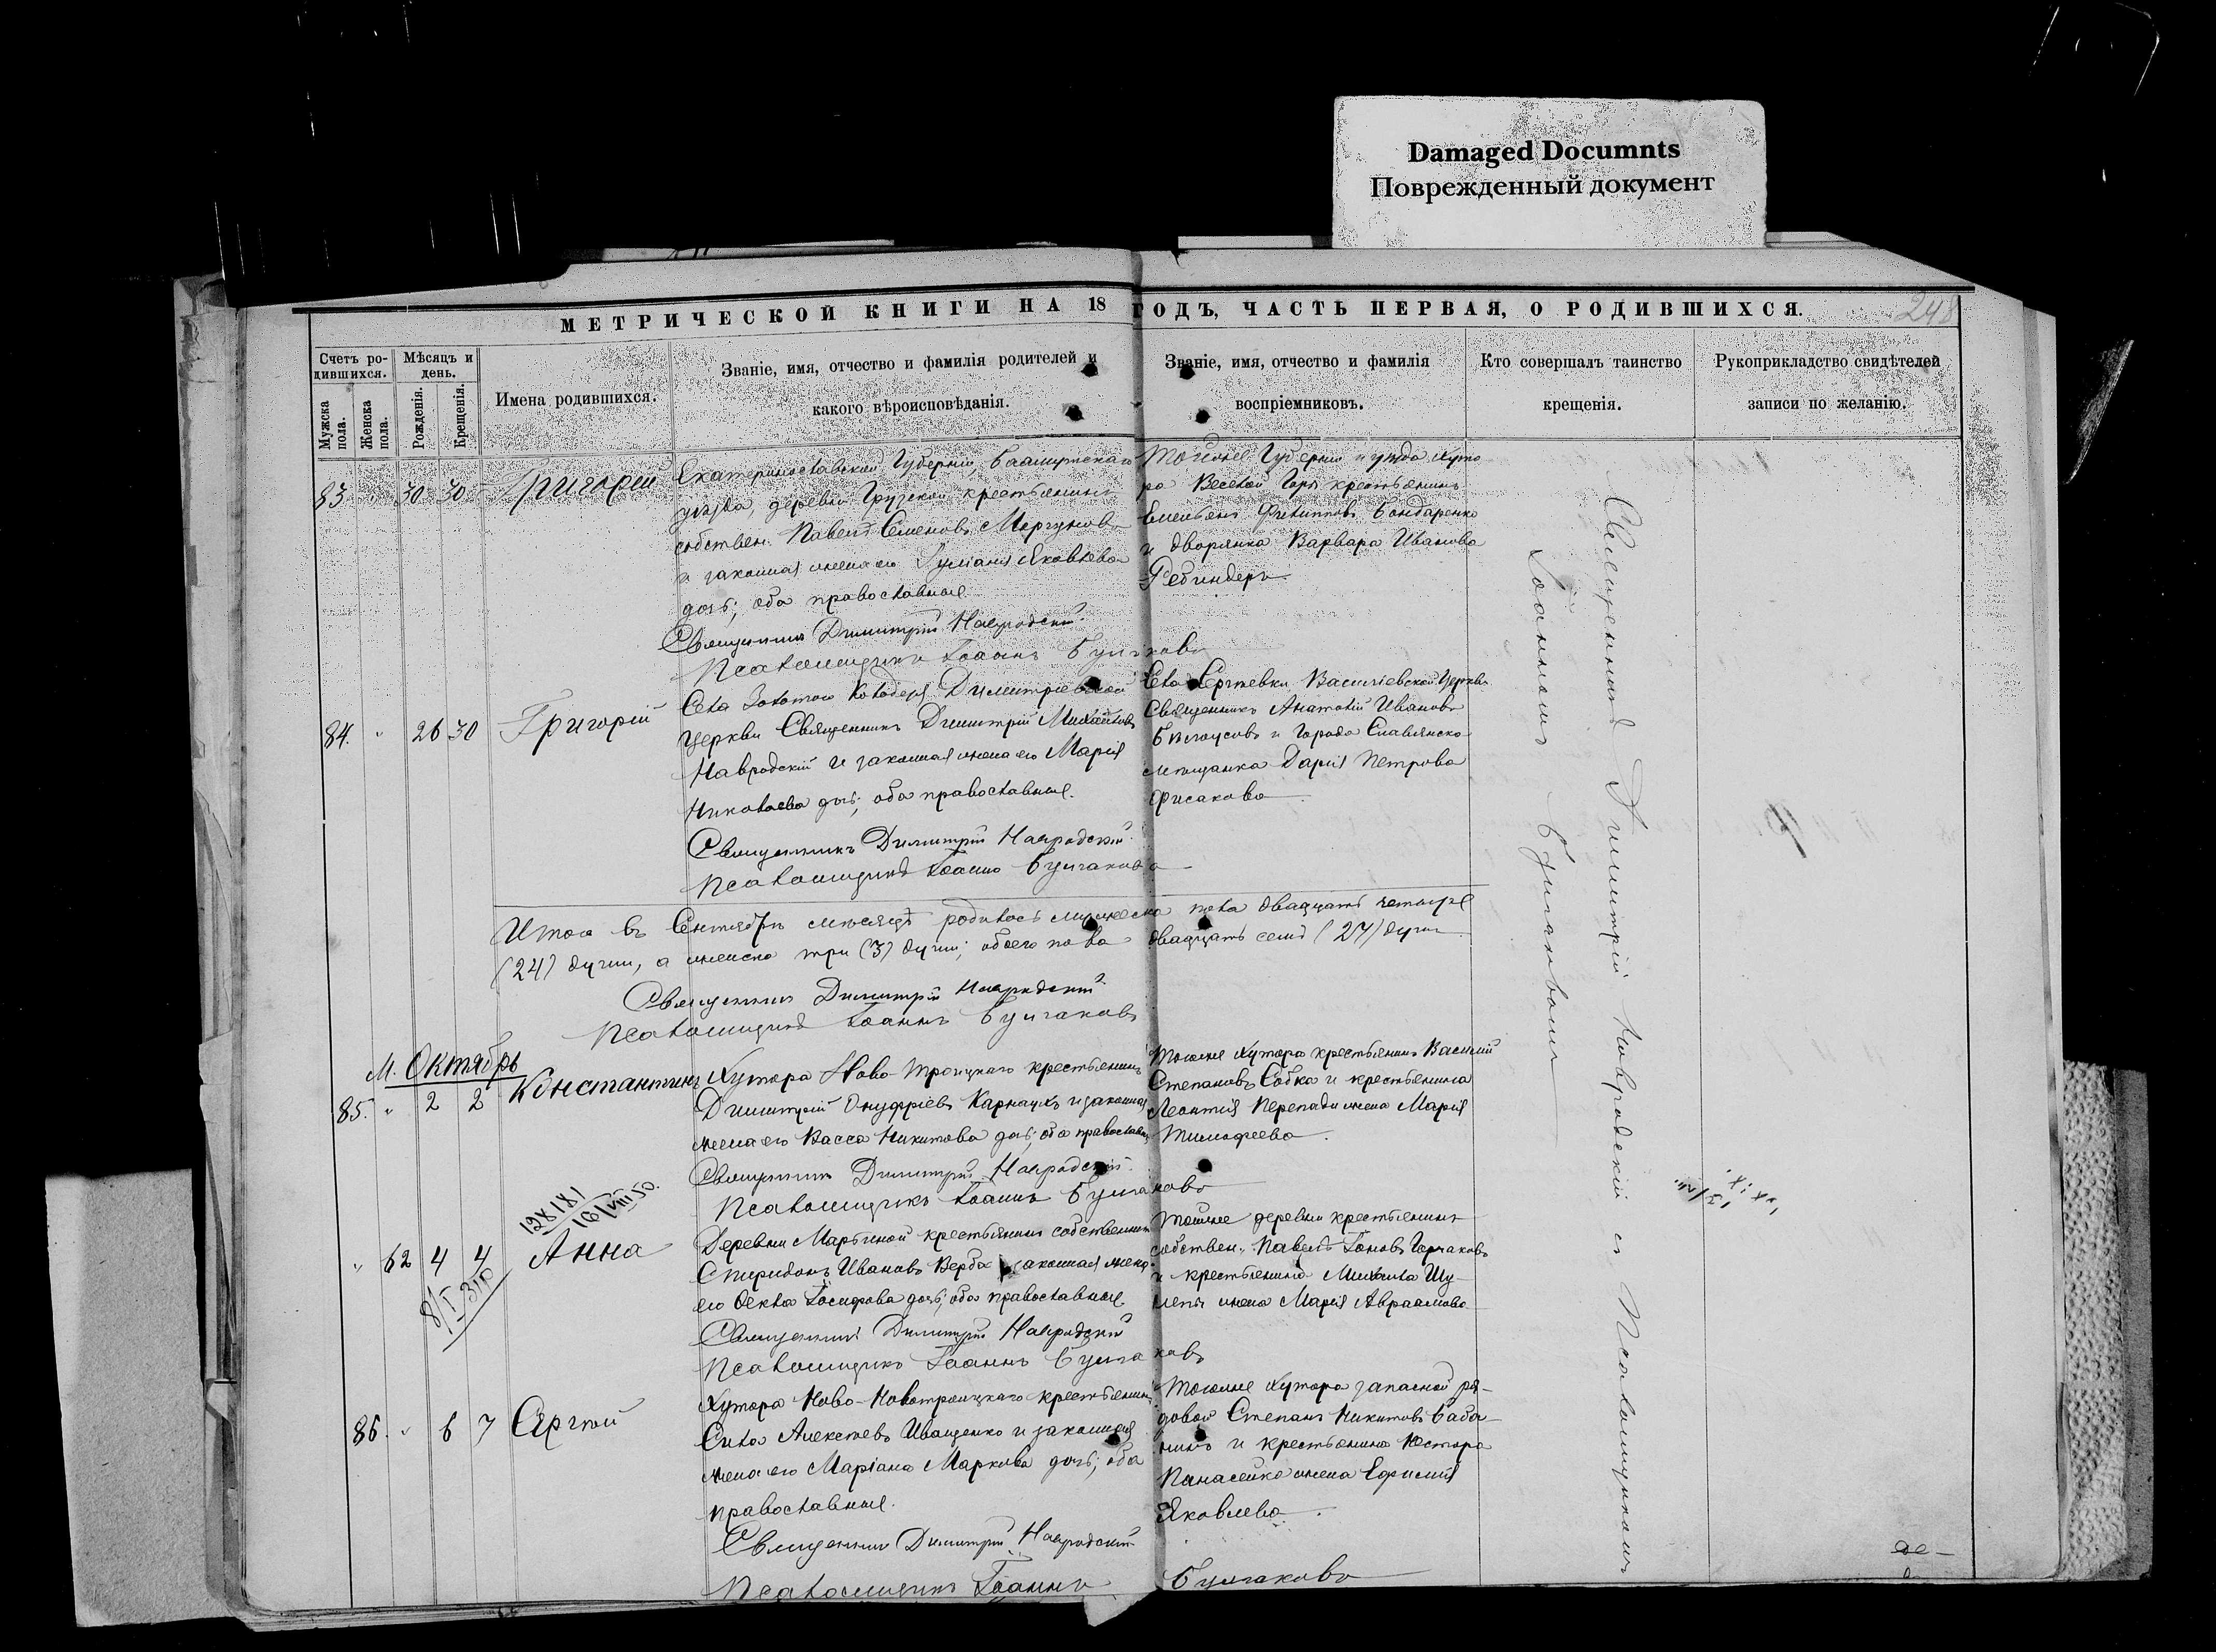 Damaged Documnts
Поврежденный документ
248
МЕТРИЧЕСКОЙ КНИГИ НА 18 ГОДЪ, ЧАСТЬ ПЕРВАЯ, О РОДИВШИХСЯ.
Счетъ ро-
дившихся.
Мѣсяцъ и
день.
Мужска
пола.
Женска
пола.
Рожденія.
Крещенія.
Имена родившихся.
Званіе, имя, отчество и фамилія родителей и
какого вѣроисповѣданія.
Званіе, имя, отчество и фамилія
воспріемниковъ.
Кто совершалъ таинство
крещенія.
Рукоприкладство свидѣтелей
записи по желанію.
83. " 30 30 Григорій
Екатеринославской Губерніи, Бахмутскаго
уѣзда, деревни Грузской крестьянинъ
собствен. Павелъ Семеновъ
и законная жена его Яковлева
дочь; оба православные
Тойже Губерніи и уѣзда хуто
ра Веселой Горы крестьянинъ
Емельянъ Филипповъ Бондаренко
и дворянка Варвара Иванова
Ребиндеръ
Священникъ Димитрій Навродскій
Псаломщикъ Іоаннъ Булгаковъ
84. " 26 30 Григорій
Села Золотого Колодезя Димитріевской
церкви Священникъ Димитрій Михайловъ
Навродскій и законная жена его Марія
Николаева дочь; оба православные.
Села Васильевской церкви
Священникъ Анатолій Ивановъ
Бѣлоусовъ и Города Славянска
мѣщанка Дарія Петрова
Священникъ Димитрій Навродскій
Псаломщикъ Іоаннъ Булгаковъ
Итого въ Сентябрѣ мѣсяцѣ родилось мужеска пола двадцать четыре
(24) души, а женска три (3) души; обоего пола двадцать семь (27) душъ
Священникъ Димитрій Навродскій
Псаломщикъ Іоаннъ Булгаковъ
М. Октябрь
85. " 2 2 Константинъ
Хутора Ново-Троицкаго крестьянинъ
Димитрій Онуфріевъ Карнаухъ и законная
жена его Васса Никитова дочь; оба православн
Тогоже хутора крестьянинъ Василій
Степановъ Собка и крестьянина
Леонтія Перепади жена Марія
Тимофеева.
Священникъ Димитрій Навродскій
Псаломщикъ Іоаннъ Булгаковъ
128181
16/VIII 50.
" 62 4 4 Анна
Деревни Марьиной крестьянинъ собственникъ
Спиридонъ Ивановъ Верба и законная жена
его Ѳекла Іосифова дочь; оба православные
Тойже деревни крестьянинъ
собствен. Павелъ Іоновъ Горчаковъ
и крестьянина Михаила Шу-
лепы жена Марія Авраамова
Священникъ Димитрій Навродскій
Псаломщикъ Іоаннъ Булгаковъ
86. " 6 7 Сергѣй
Хутора Ново-Новотроицкаго крестьянинъ
Сила Алексѣевъ Иващенко и законная
жена его Маріана Маркова дочь; оба
православные.
Тогоже хутора запасной ря-
довой Степанъ Никитовъ Баба-
нинъ и крестьянина Нестора
Панасейко жена Евфимія
Яковлева.
Священникъ Димитрій Навродскій
Псаломщикъ Іоаннъ Булгаковъ
Священникъ Димитрій Навродскій съ Псаломщикомъ
Іоанномъ Булгаковымъ